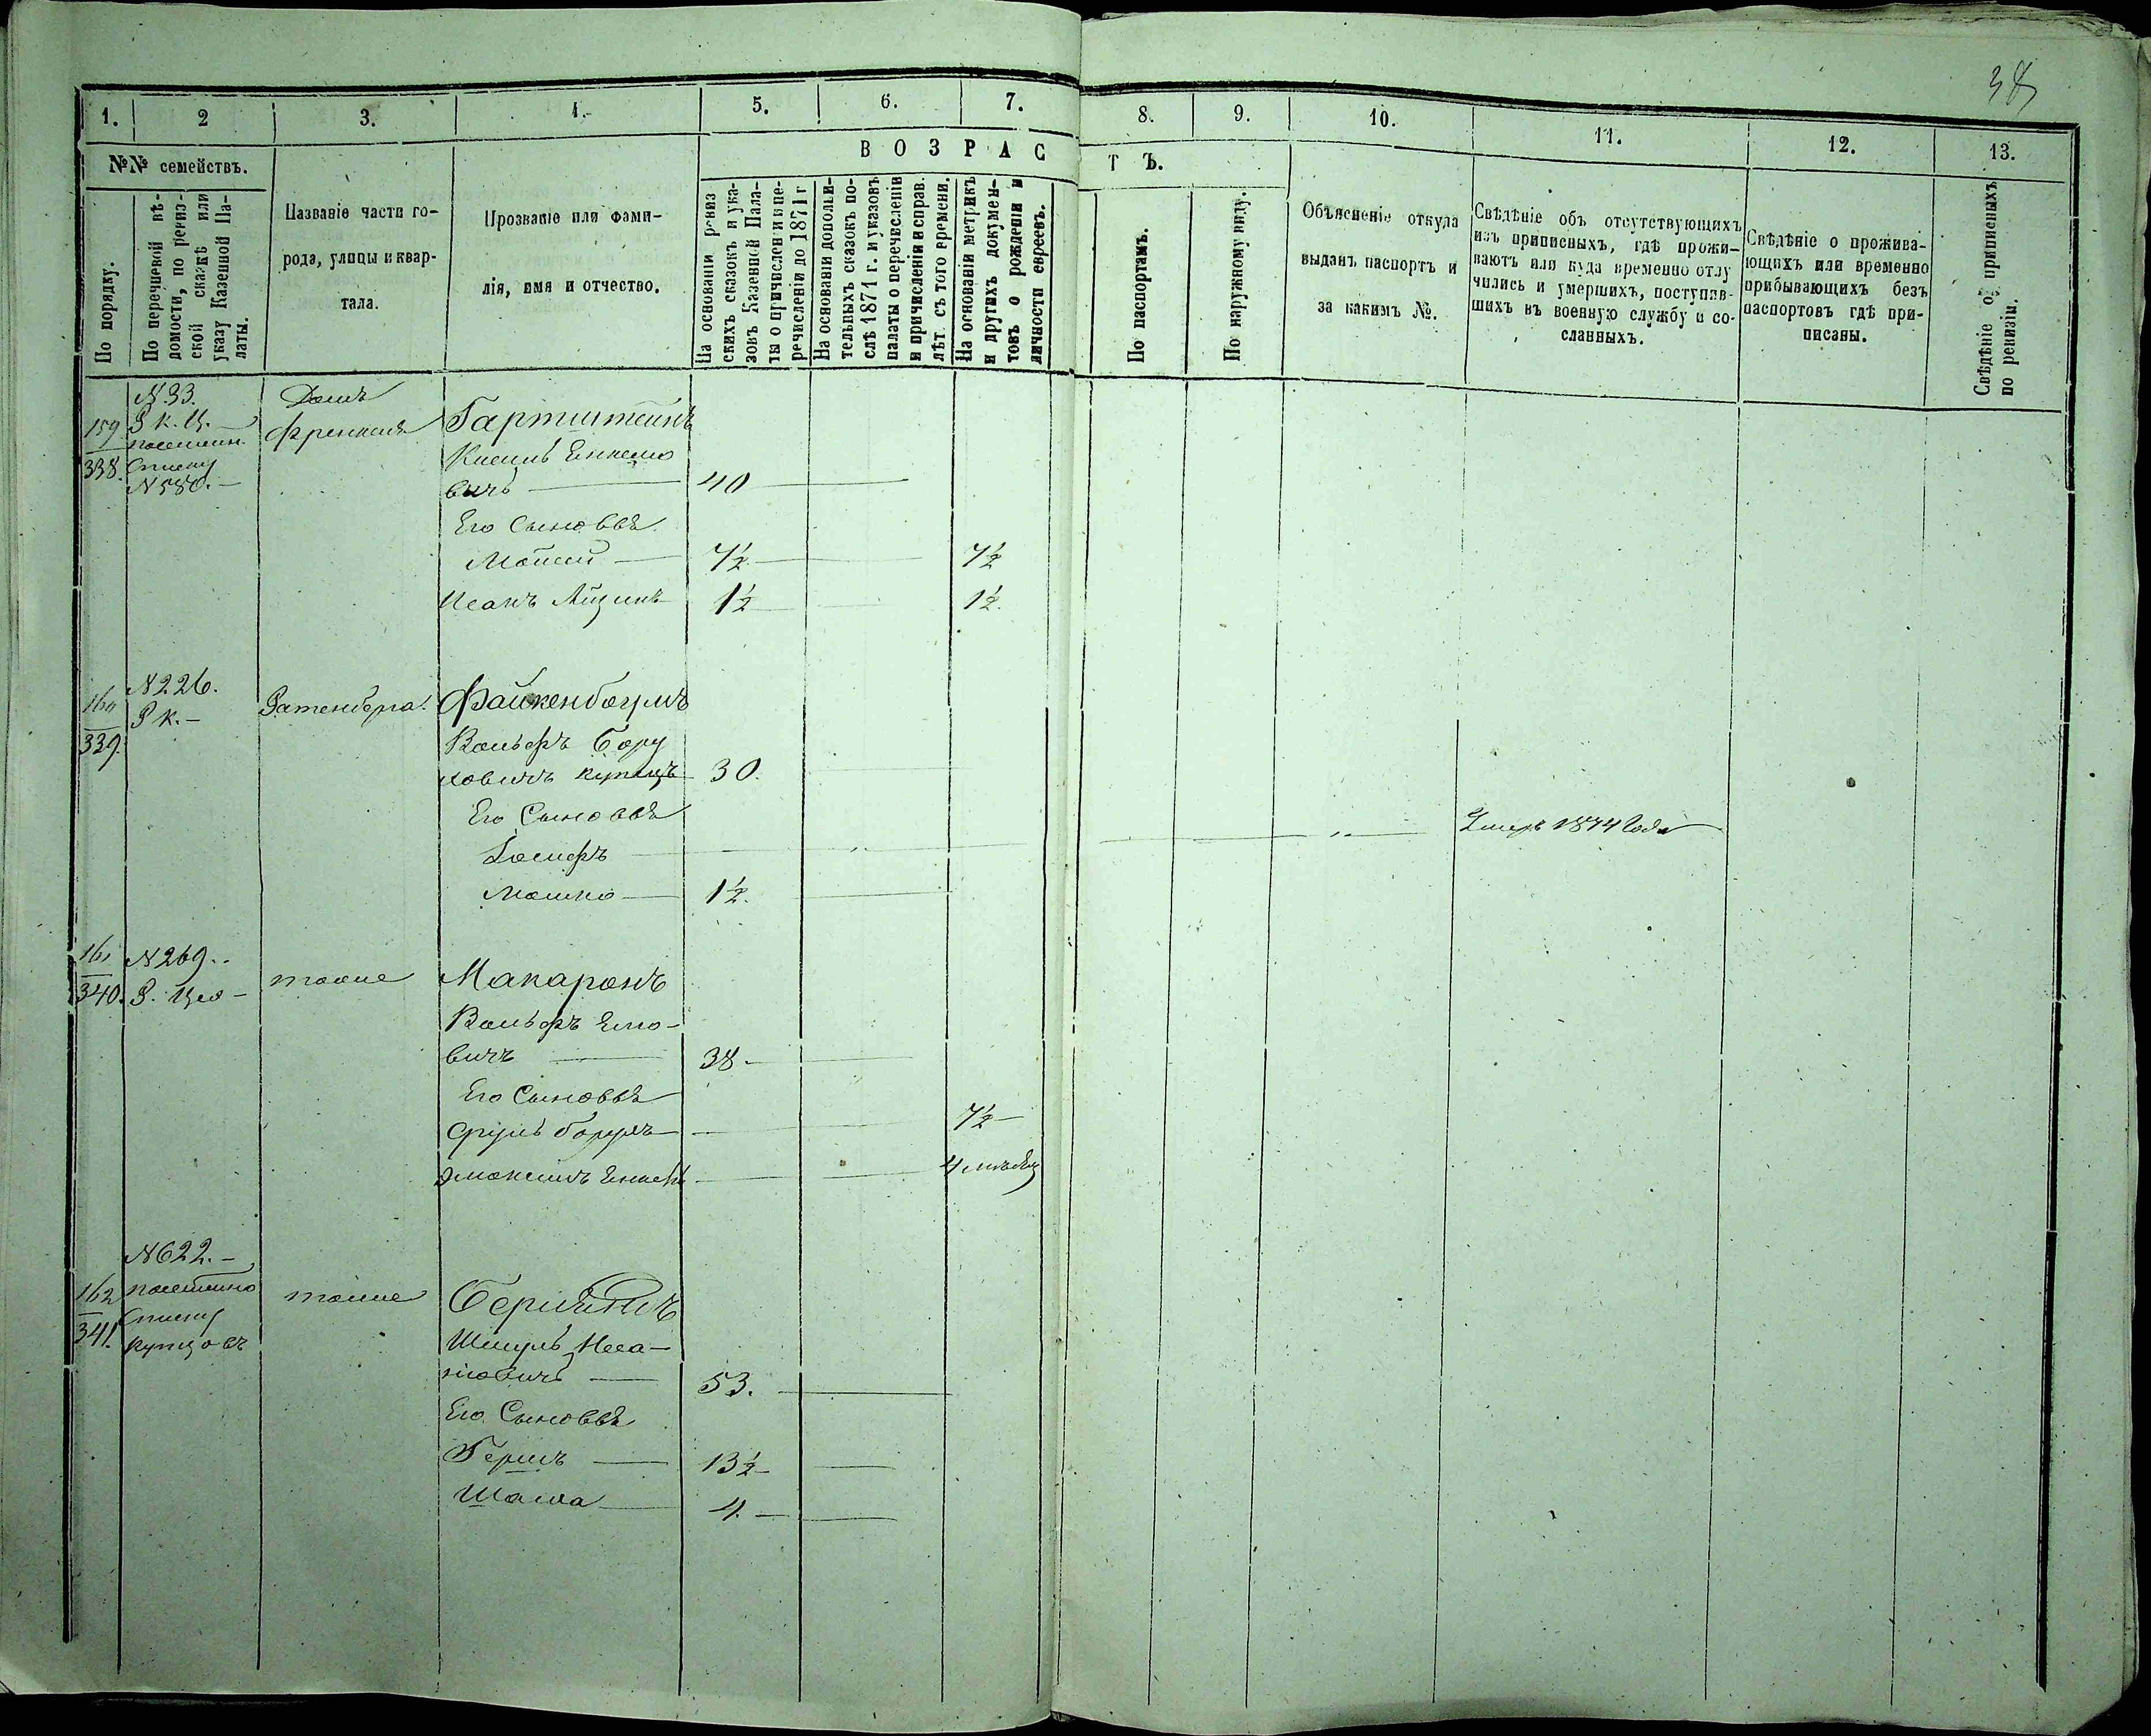 38
1. 2 3. 4. 5. 6. 7. 8. 9. 10. 11. 12. 13.
№№ семействъ.
По порядку.
По перечневой вѣ-
домости, по ревиз-
ской сказкѣ или
указу Казенной Па-
латы.
Названіе части го-
рода, улицы и квар-
тала.
Прозваніе или фами-
лія, имя и отчество.
ВОЗРАСТЪ.
На основаніи ревиз
скихъ сказокъ и ука-
зовъ Казенной Пала-
ты о причислен и и пе-
речисленіи до 1871 г
На основаніи дополни-
тельныхъ сказокъ по-
слѣ 1871 г. и указовъ
палаты о перечисленіи
и причисленіи и справ.
лѣт. съ того времени.
На основаніи метрикъ
и другихъ докумен-
товъ о рожденіи и
личности евреевъ.
По паспортамъ.
По наружному виду.
Объясненіе откуда
выданъ паспортъ и
за какимъ №.
Свѣдѣніе объ отсутствующихъ
изъ приписныхъ, гдѣ прожи-
ваютъ или куда временно отлу
чились и умершихъ, поступив-
шихъ въ военную службу и со-
сланныхъ.
Свѣдѣніе о прожива-
ющихъ или временно
прибывающихъ безъ
паспортовъ гдѣ при-
писаны.
Свѣдѣніе о приписныхъ
по ревизіи.
159
338.
N 33.
Р к. Ц. –
посемейн.
списку
N 580. –
Домъ
Френкеля
Гартштейнъ
вичъ — 40
Его Сыновья
Мошей — 7½ — 7½
Исакъ Айзикъ 1½ — 1½.
160
339.
N 226.
Р к. –
Ратенберга.
Файкенбаумъ
Вольфъ Бору
ховичъ купецъ 30.
Его Сыновья
Іосифъ — Умеръ 1874 Года
Мошко — 1½.
161
340.
N 269..
тоже
Макаронъ
Вольфъ
вичъ — 38 –
Его Сыновья
Сруль Борухъ — 7½ –
— 4 мѣсяц
162
341.
N 622. –
посемейно
списку
купцовъ
тоже
Шмуль Иса-
ковичъ — 53.
Его Сыновья
Гершъ — 13½ –
4. –